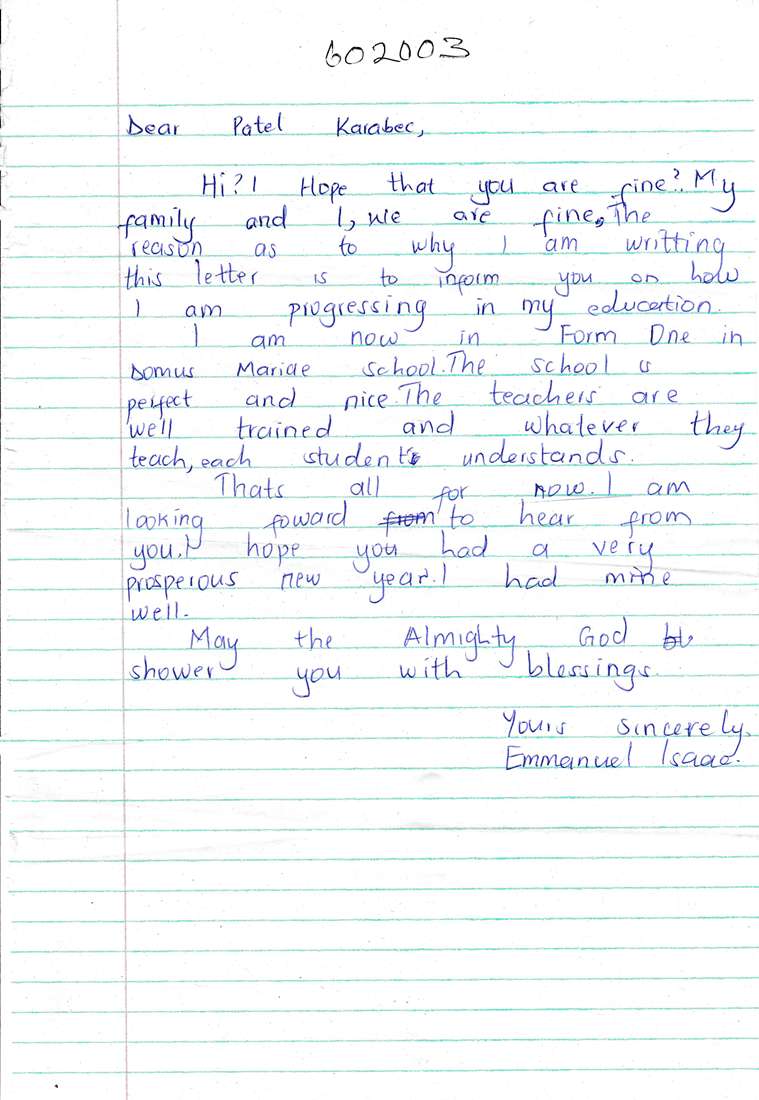 602003
Dear Patel Karabec,
Hi? I Hope that you are fine? My
family and I, we are fine, The
reason as to why I am writting
this letter is to inform you on how
I am progressing in my education.
I am now in Form One in
Domus Mariae school. The school is
perfect and nice. The teachers are
well trained and whatever they
teach, each student understands.
Thats all for now. I am
looking foward to hear from
you. I hope you had a very
prosperous new year. I had mine
well.
May the Almighty God
shower you with blessings.
Yours sincerely,
Emmanuel Isaac.